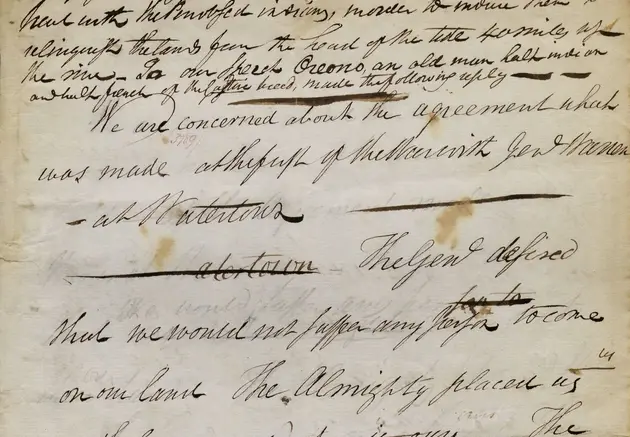 treat with the Penobscot indians, in order to induce them to
relinquish the lands from the head of the tide 40 miles up
the river – To our speech Orono, an old man half indian
and half french of the Castine breed, made the following reply —
We are concerned about the agreement which
was made at the first of the War with Genl Warren
– at Watertown
atertown The Genl desired
for to
that we would not suffer any person to come
us
on our land The Almighty placed us
The